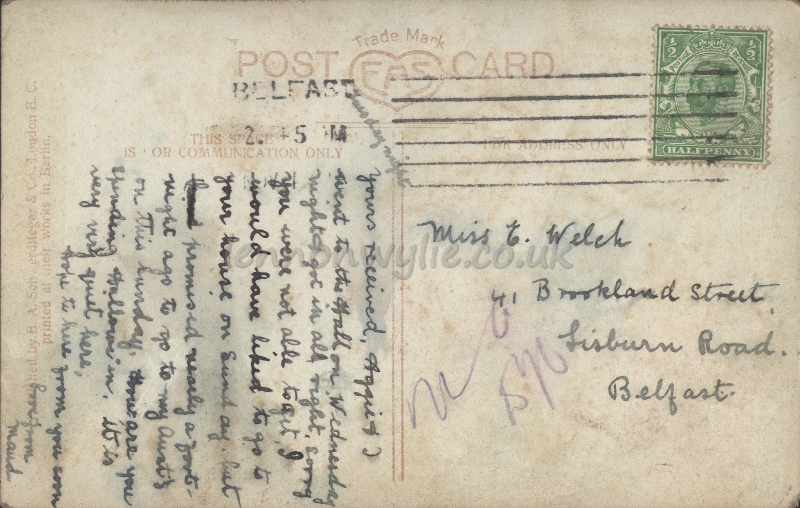 Trade Mark
POST CARD
F A S
BELFAST
2. 45 PM
THIS SPACE
IS FOR COMMUNICATION ONLY
FOR ADDRESS ONLY
HALFPENNY
½ ½
lennonwylie.co.uk
Miss E. Welch
41 Brookland Street
Lisburn Road.
Belfast.
Tuesday night
Yours received, Aggie & I
went to the Hall on Wednesday
night & got in all right, sorry
you were not able to get, I
would have liked to go to
your house on Sunday, but
I promised nearly a fort-
night ago to go to my Aunt's
on this Sunday. How are you
spending Hallowe'in. It is
very very quiet here,
Hope to here from you soon
from
Maud
& Co., London E. C.
printed at their works in Berlin.